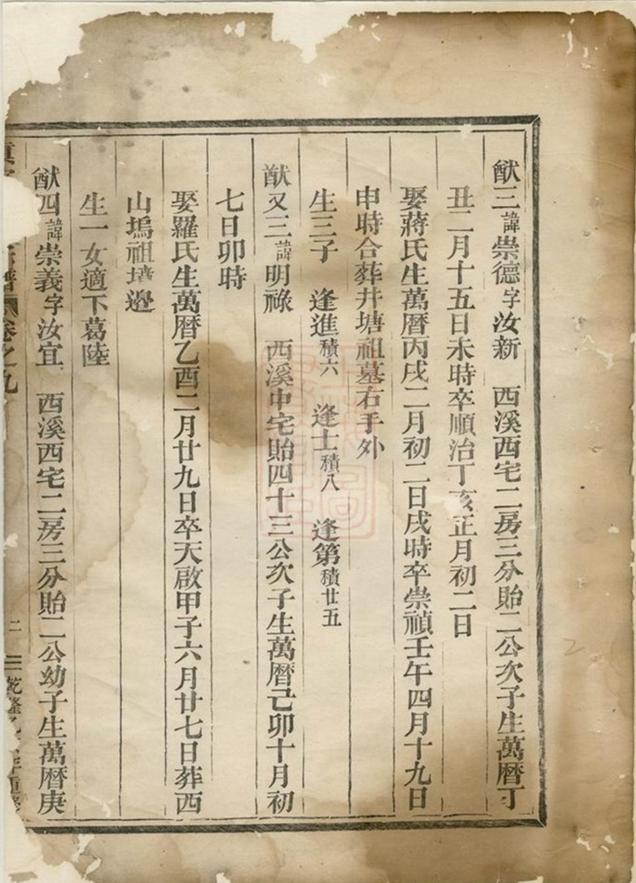 猷三諱崇德字汝新 西溪西宅二房三分貽二公次子生萬曆丁
丑二月十五日未時卒順治丁亥正月初二日
娶蔣氏生萬曆丙戌二月初二日戌時卒崇禎壬午四月十九日
申時合葬井塘祖墓右手外
生三子 逢進積六 逢士積八 逢第積廿五
猷又三諱明祿 西溪中宅貽四十三公次子生萬曆己卯十月初
七日卯時
娶羅氏生萬曆乙酉二月廿九日卒天啟甲子六月廿七日葬西
山塢祖墳邊
生一女適下葛陸
猷四諱崇義字汝宜 西溪西宅二房三分貽二公幼子生萬曆庚
譜 卷之九 二 乾隆